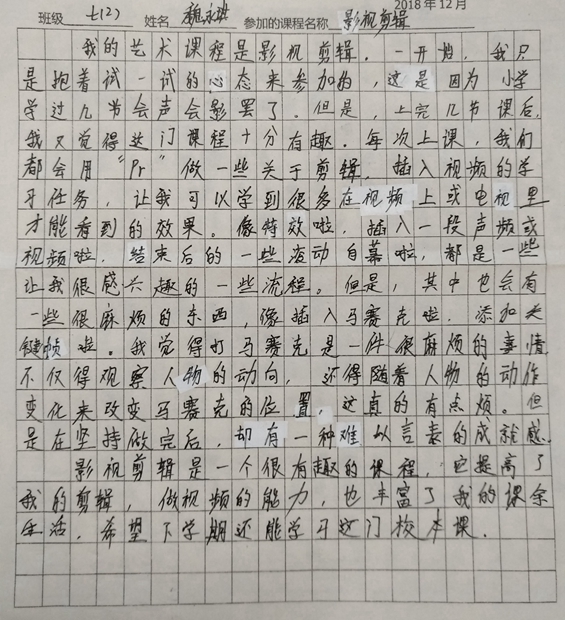 2018年12月
班级 七(2) 姓名 魏永琪 参加的课程名称 影视剪辑
我的艺术课程是影视剪辑。一开始，我只
是抱着试一试的心态来参加的，这是因为小学
学过几节会声会影罢了。但是，上完几节课后，
我又觉得这门课程十分有趣。每次上课，我们
都会用“Pr”做一些关于剪辑，插入视频的学
习任务，让我可以学到很多在视频上或电视里
才能看到的效果。像特效啦，插入一段声频或
视频啦，结束后的一些滚动自幕啦，都是一些
让我很感兴趣的一些流程。但是，其中也会有
一些很麻烦的东西，像插入马赛克啦，添加关
键帧啦。我觉得打马赛克是一件很麻烦的事情，
不仅得观察人物的动向，还得随着人物的动作
变化来改变马赛克的位置，这真的有点烦。但
是在坚持做完后，却有一种难以言表的成就感。
影视剪辑是一个很有趣的课程，它提高了
我的剪辑，做视频的能力，也丰富了我的课余
生活，希望下学期还能学习这门校本课．